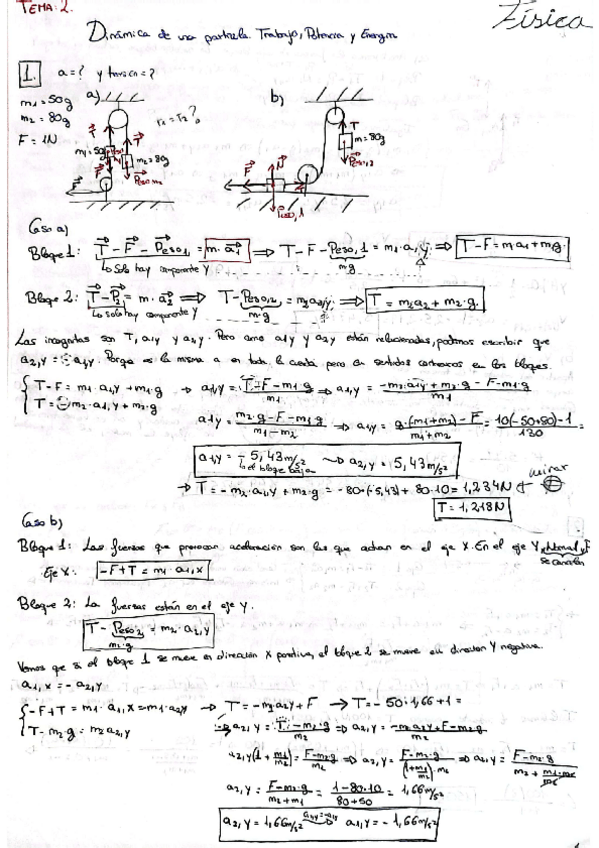 TEMA: 2.
Física
Dinámica de una partícula. Trabajo, Potencia y Energía
1. a=? y tensión=?
m1 = 50g
m2 = 80g
F = 1N
a)
b)
T
m1 = 50g
m2 = 80g
F
T
m = 80g
Peso,2
F
N
Peso,1
Caso a)
Bloque 1: T - F - Peso1 = m·a1 ⟹ T - F - Peso,1 = m1·a1,y ⟹ T - F = m1a1 + m1g.
Lo solo hay componente Y
m·g
Bloque 2: T - P2 = m·a2 ⟹ T - Peso,2 = m2a2,y ⟹ T = m2a2 + m2·g.
Lo solo hay componente Y
m·g
Las incógnitas son T, a1y y a2y. Pero como a1y y a2y están relacionadas, podemos escribir que
a2,y = -a1,y. Porque es la misma a en toda la cuerda pero en sentidos contrarios en los bloques.
T - F = m1·a1,y + m1g → a1,y = T - F - m1g / m1 ⟹ a1,y = -m2a1y + m2·g - F - m1g / m1
T = -m2·a1,y + m2·g
a1y = m2·g - F - m1g / m1 - m2 ⟹ a1,y = g·(m1+m2) - F / m1+m2 = 10(-50+80)-1 / 130 =
a1,y = -5,43 m/s² ⟶ a2,y = 5,43 m/s²
el bloque baja
→ T = -m2·a1,y + m2·g = -80·(-5,43) + 80·10 = 1,234N
mirar
T = 1,218N
Caso b)
Bloque 1: Las fuerzas que provocan aceleración son las que actúan en el eje X. En el eje Y,
se cancelan
Eje X: -F + T = m1·a1,x
Bloque 2: La fuerzas están en el eje Y.
T - Peso2 = m2·a2,y
m·g
Vemos que si el bloque 1 se mueve en dirección X positiva, el bloque 2 se mueve en dirección Y negativa.
a1,x = -a2,y
-F + T = m1·a1,x = m1·a2y → T = -m2a2y + F → T = -50·1,66 + 1 =
T - m2·g = m2a2,y
a2,y = T - m2·g / m2 ⟹ a2,y = -m2a2y + F - m2·g / m2
a2,y(1 + m1/m2) = F - m2g / m2 ⟹ a2,y = F - m2·g / (1+m1/m2)·m2 ⟹ a2,y = F - m2·g
a2,y = F - m2·g / m2+m1 = 1 - 80·10 / 80+50 = 1,66 m/s²
a2,y = 1,66 m/s² a1,y = -1,66 m/s²